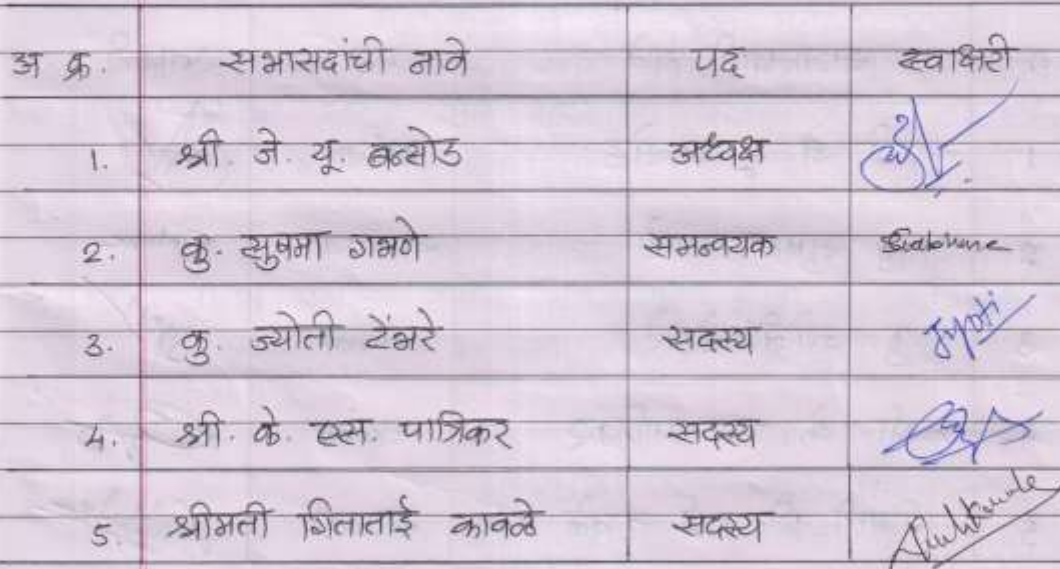 अ क्र. सभासदांची नावे पद स्वाक्षरी
1. श्री. जे. यू. बन्सोड अध्यक्ष
2. कु. सुषमा गभणे समन्वयक Gabhane
3. कु. ज्योती टेंभरे सदस्य Jyoti
4. श्री. के. एस. पात्रिकर सदस्य
5. श्रीमती गिताताई कावळे सदस्य